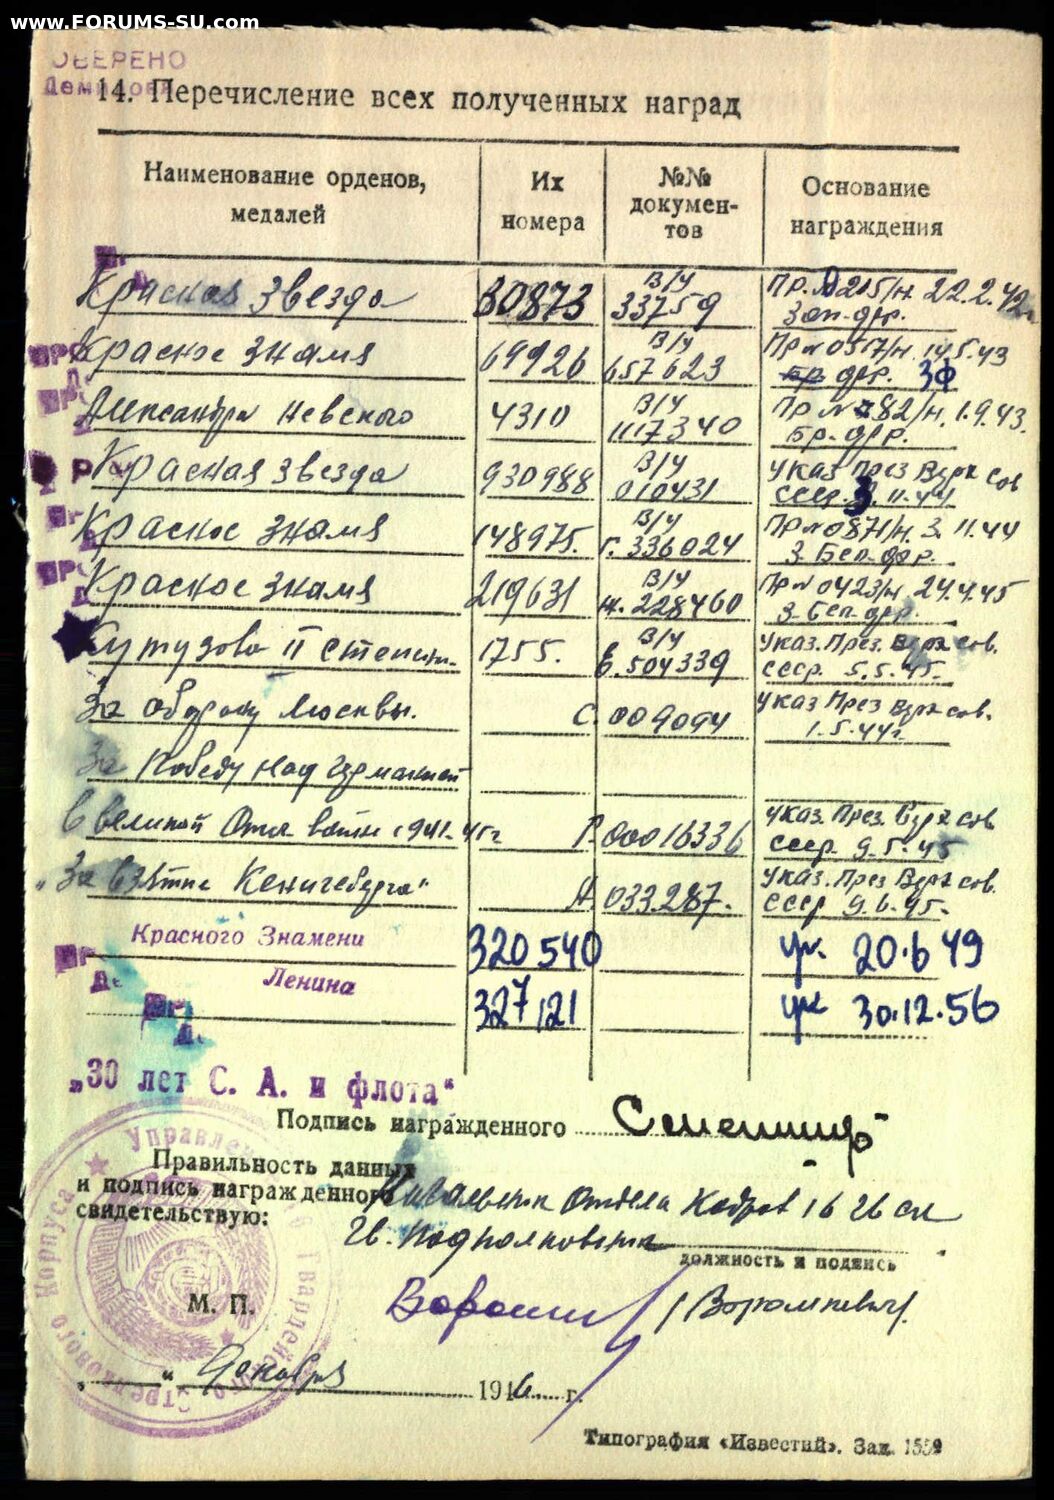 www.FORUMS-SU.com
ОВЕРЕНО
14. Перечисление всех полученных наград
Наименование орденов, медалей
Их номера
№№ докумен-тов
Основание награждения
Красная Звезда 30873 В/У 33759 Пр. 0215/н. 22.2.42г Зап. фр.
Красное Знамя 69926 В/У 657623 Пр № 0517/н. 14.5.43 фр. ЗФ
Александра Невского 4310 В/У 1117340 Пр № 82/н. 1.9.43. Бр. фр.
Красная Звезда 930988 В/У 010431 Указ През Верх Сов СССР 3.11.44
Красное Знамя 148975. В/У Г. 336024 Пр № 0871/н. 3.11.44 3 Бел. фр.
Красное Знамя 219631 В/У 228460 Пр № 0423/н. 24.4.45 3 Бел. фр
Кутузова II степени. 1755. В/У Е. 504339 Указ. През. Верх Сов. СССР. 5.5.45.
За оборону Москвы. С. 009094 Указ През Верх Сов. 1.5.44г.
За Победу над Германией
в Великой Оте войне 1941-45г Р. 00016336 Указ. През. Верх Сов СССР. 9.5.45
„За взятие Кенигсберга" А. 033287. Указ. През Верх Сов. СССР 9.6.45.
Красного Знамени 320540 Ук. 20.6 49
Ленина 327121 Ук 30.12.56
„30 лет С. А. и флота"
Подпись награжденного
Правильность данных
и подпись награжденного
свидетельствую:
Отдела Кадров 16 гв ск
Гв. Подполковник
должность и подпись
М. П.
„ " Декабря 1946 г.
Типография «Известий». Зак. 1559